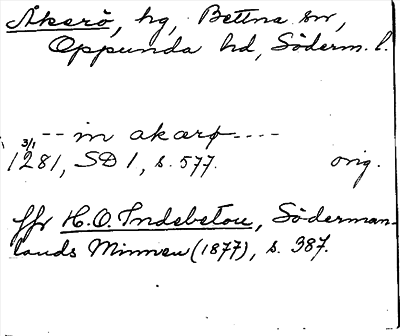 Åkerö, hg, Bettna sn,
Oppunda hd, Söderm. l.
-- in akærø ----
3/1
1281, SD 1, s. 577. orig.
jfr H.O. Indebetou, Söderman-
lands Minnen (1877), s. 387.